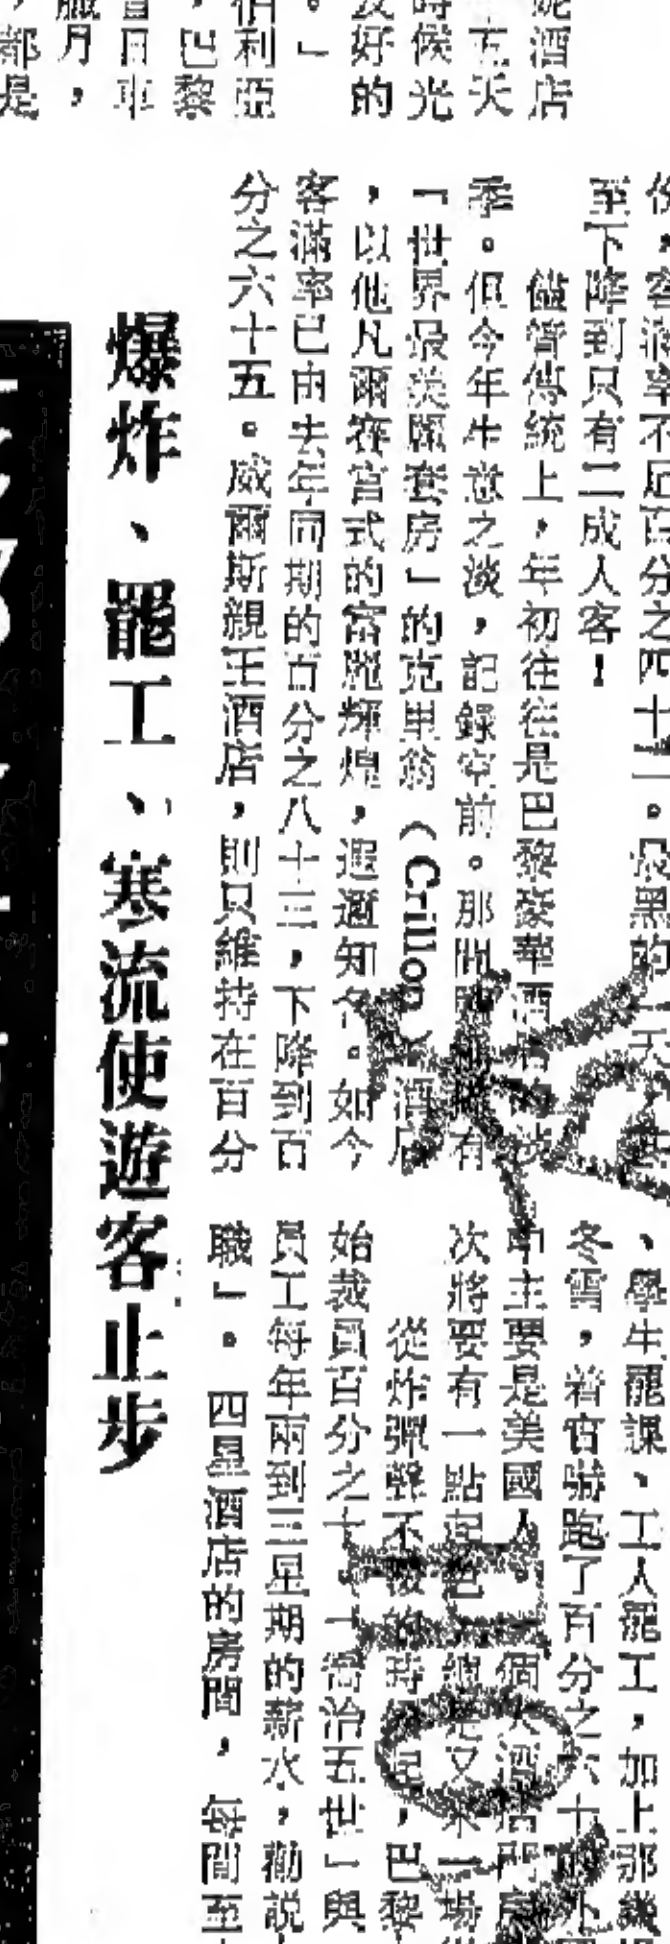 妮酒店
五天
時候光
友好的
。」
伯利亞
，巴黎
雪日車
臘月，
都是
份，客滿率不足百分之四十二。最黑的一天，甚
至下降到只有二成人客！
儘管傳統上，年初往往是巴黎豪華酒店的淡
季。但今年生意之淡，記錄空前。那間號稱擁有
「世界最美麗套房」的克里翁（Crillon）酒店
，以他凡爾賽宮式的富麗輝煌，遐邇知名。如今
客滿率已由去年同期的百分之八十三，下降到百
分之六十五。威爾斯親王酒店，則只維持在百分
、學生罷課、工人罷工，加上那幾場
冬雪，着實嚇跑了百分之六十的外國
中主要是美國人。一個大酒店門房
次將要有一點起色，總是又來一場
從炸彈聲不響的時候起，巴黎
始裁員百分之十。「喬治五世」與
員工每年兩到三星期的薪水，勸說
職」。四星酒店的房間，每間至
爆炸、罷工、寒流使遊客止步